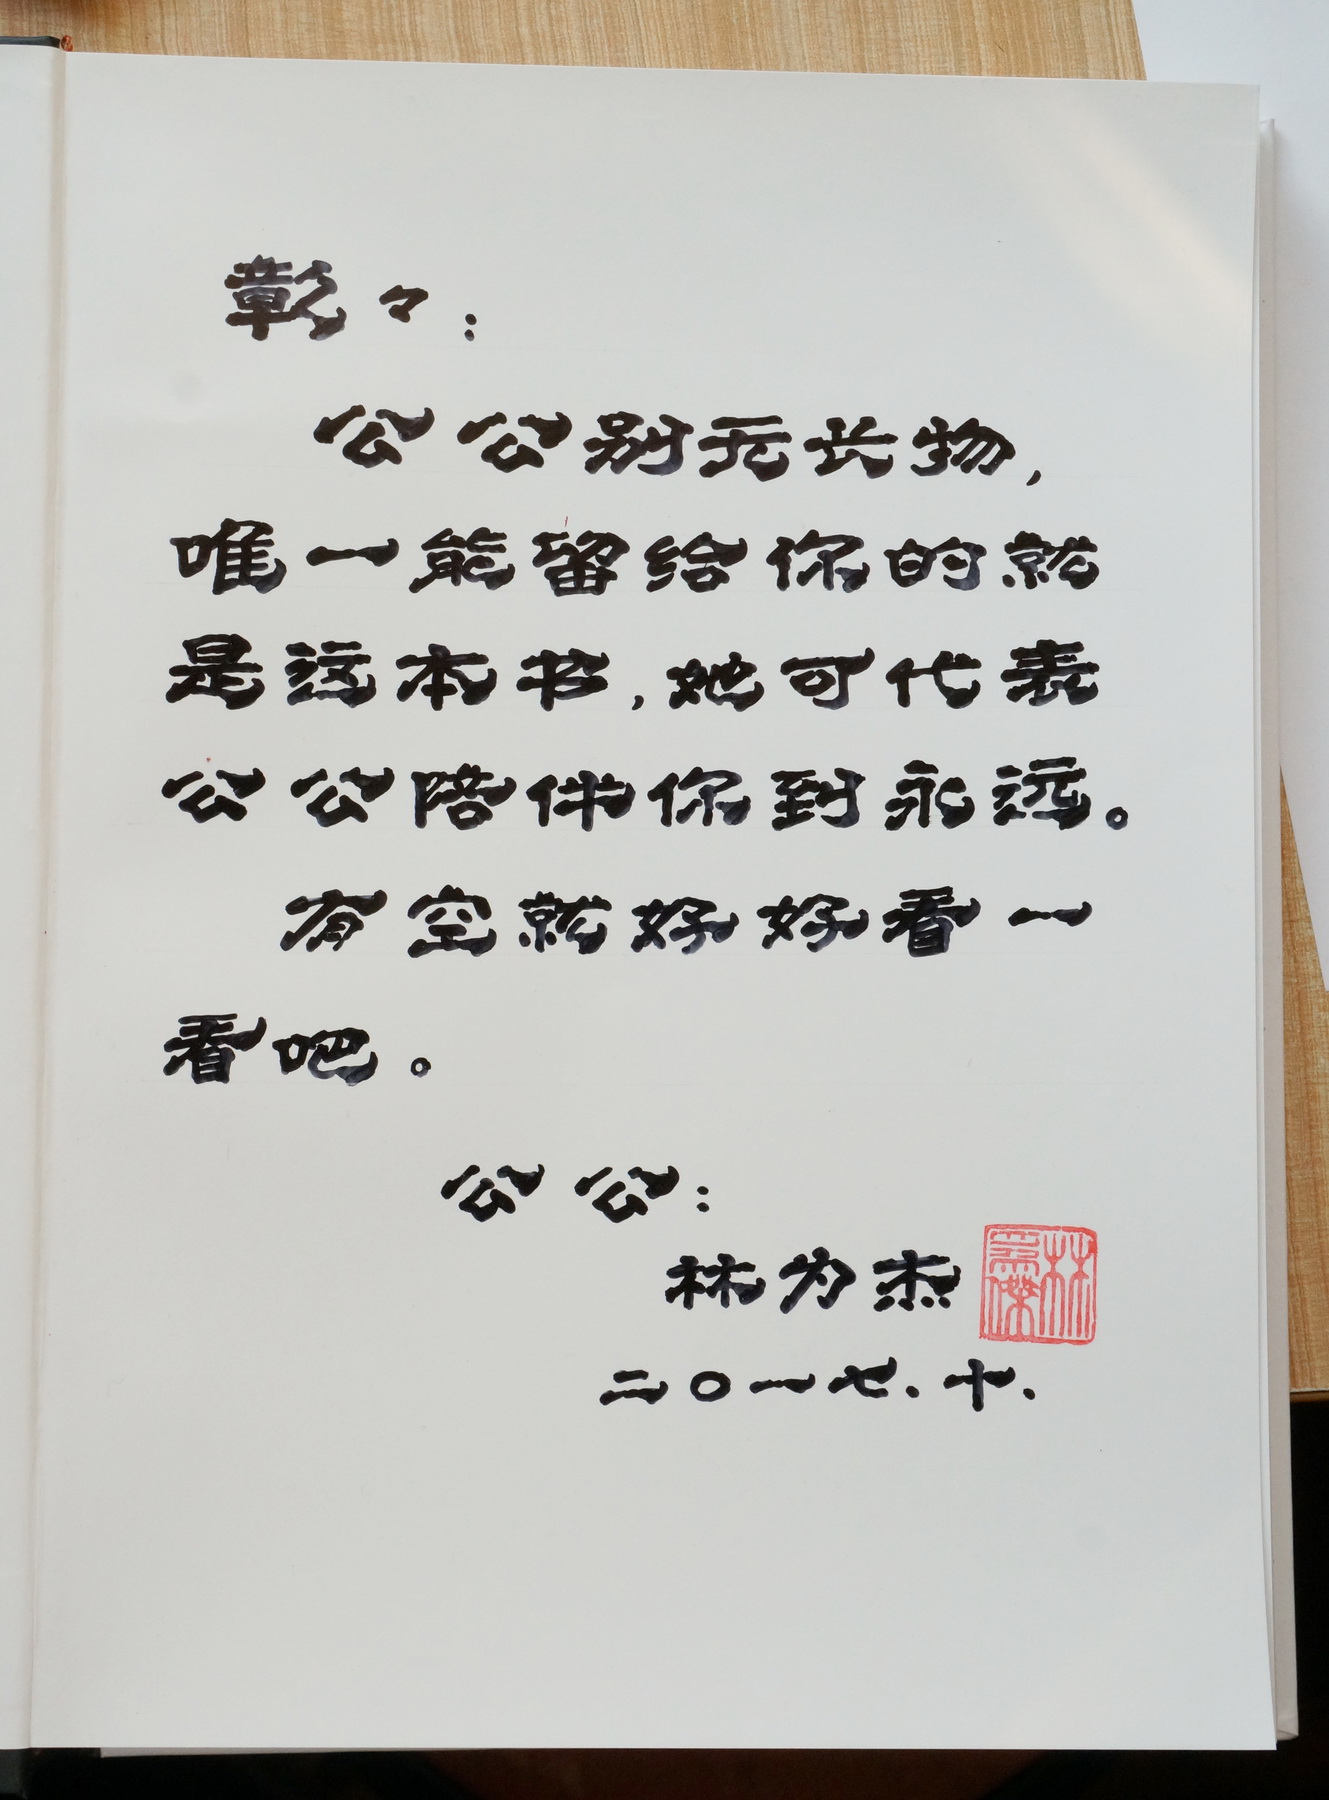 々：
公公别无长物，
唯一能留给你的就
是这本书，她可代表
公公陪伴你到永远。
有空就好好看一
看吧。
公公：
林为杰
林爲傑
二〇一七.十.